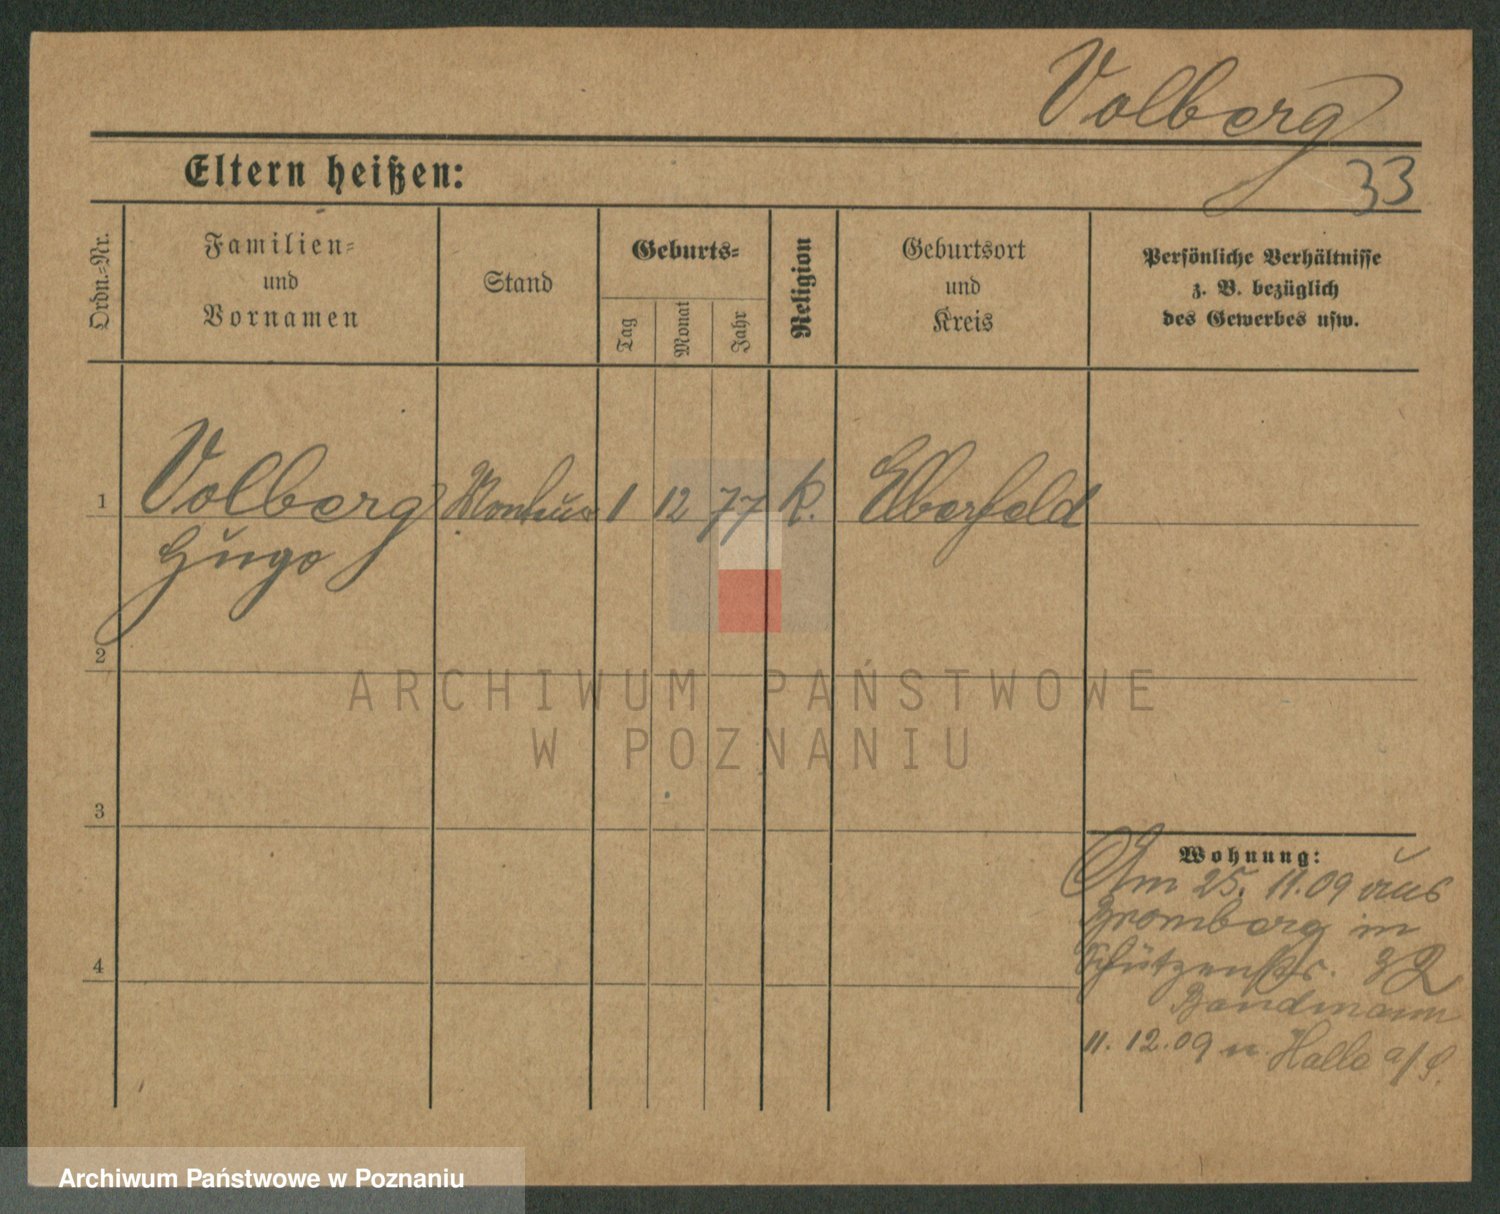 Volberg
Eltern heißen:
33
Ordn.=Nr.
Familien=
und
Vornamen
Stand
Geburts=
Tag
Monat
Jahr
Religion
Geburtsort
und
Kreis
Persönliche Verhältnisse
z. B. bezüglich
des Gewerbes usw.
1
Volberg
Hugo
Monteur
1
12
77
k.
Elberfeld
2
ARCHIWUM PAŃSTWOWE
W POZNANIU
3
Wohnung:
Am 25. 11.09 aus
Bromberg in
Schützenstr.
Bandmann
11. 12.09 n. Halle a/S.
4
Archiwum Państwowe w Poznaniu